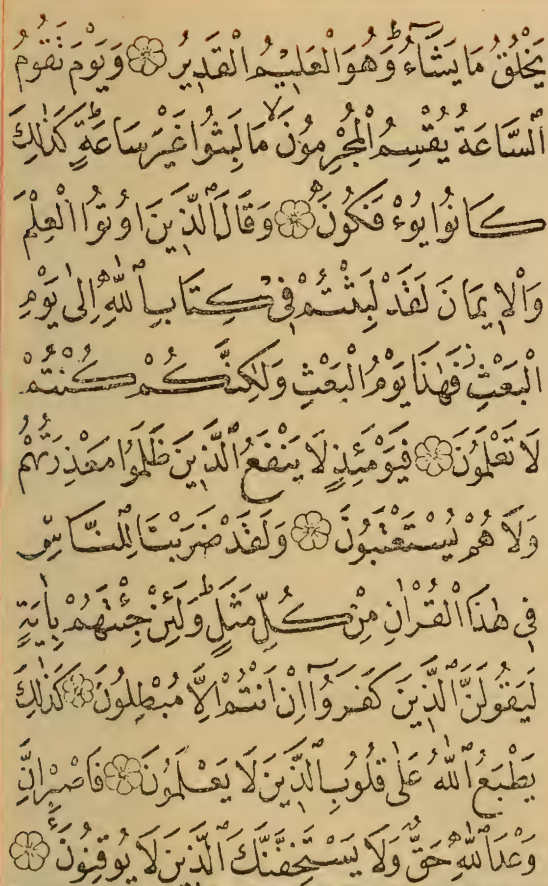 يَخْلُقُ مَا يَشَآءُ ۚ وَهُوَ الْعَلِيمُ الْقَدِيرُ ۝ وَيَوْمَ تَقُومُ
السَّاعَةُ يُقْسِمُ الْمُجْرِمُونَ مَا لَبِثُوا غَيْرَ سَاعَةٍ ۚ كَذٰلِكَ
كَانُوا يُؤْفَكُونَ ۝ وَقَالَ الَّذِينَ اُوتُوا الْعِلْمَ
وَالْاِيمَانَ لَقَدْ لَبِثْتُمْ فِي كِتَابِ اللّٰهِ اِلٰى يَوْمِ
الْبَعْثِ فَهٰذَا يَوْمُ الْبَعْثِ وَلٰكِنَّكُمْ كُنْتُمْ
لَا تَعْلَمُونَ ۝ فَيَوْمَئِذٍ لَا يَنْفَعُ الَّذِينَ ظَلَمُوا مَعْذِرَتُهُمْ
وَلَا هُمْ يُسْتَعْتَبُونَ ۝ وَلَقَدْ ضَرَبْنَا لِلنَّاسِ
فِي هٰذَا الْقُرْاٰنِ مِنْ كُلِّ مَثَلٍ ۚ وَلَئِنْ جِئْتَهُمْ بِاٰيَةٍ
لَيَقُولَنَّ الَّذِينَ كَفَرُوٓا اِنْ اَنْتُمْ اِلَّا مُبْطِلُونَ ۝ كَذٰلِكَ
يَطْبَعُ اللّٰهُ عَلٰى قُلُوبِ الَّذِينَ لَا يَعْلَمُونَ ۝ فَاصْبِرْ اِنَّ
وَعْدَ اللّٰهِ حَقٌّ وَلَا يَسْتَخِفَّنَّكَ الَّذِينَ لَا يُوقِنُونَ ۝